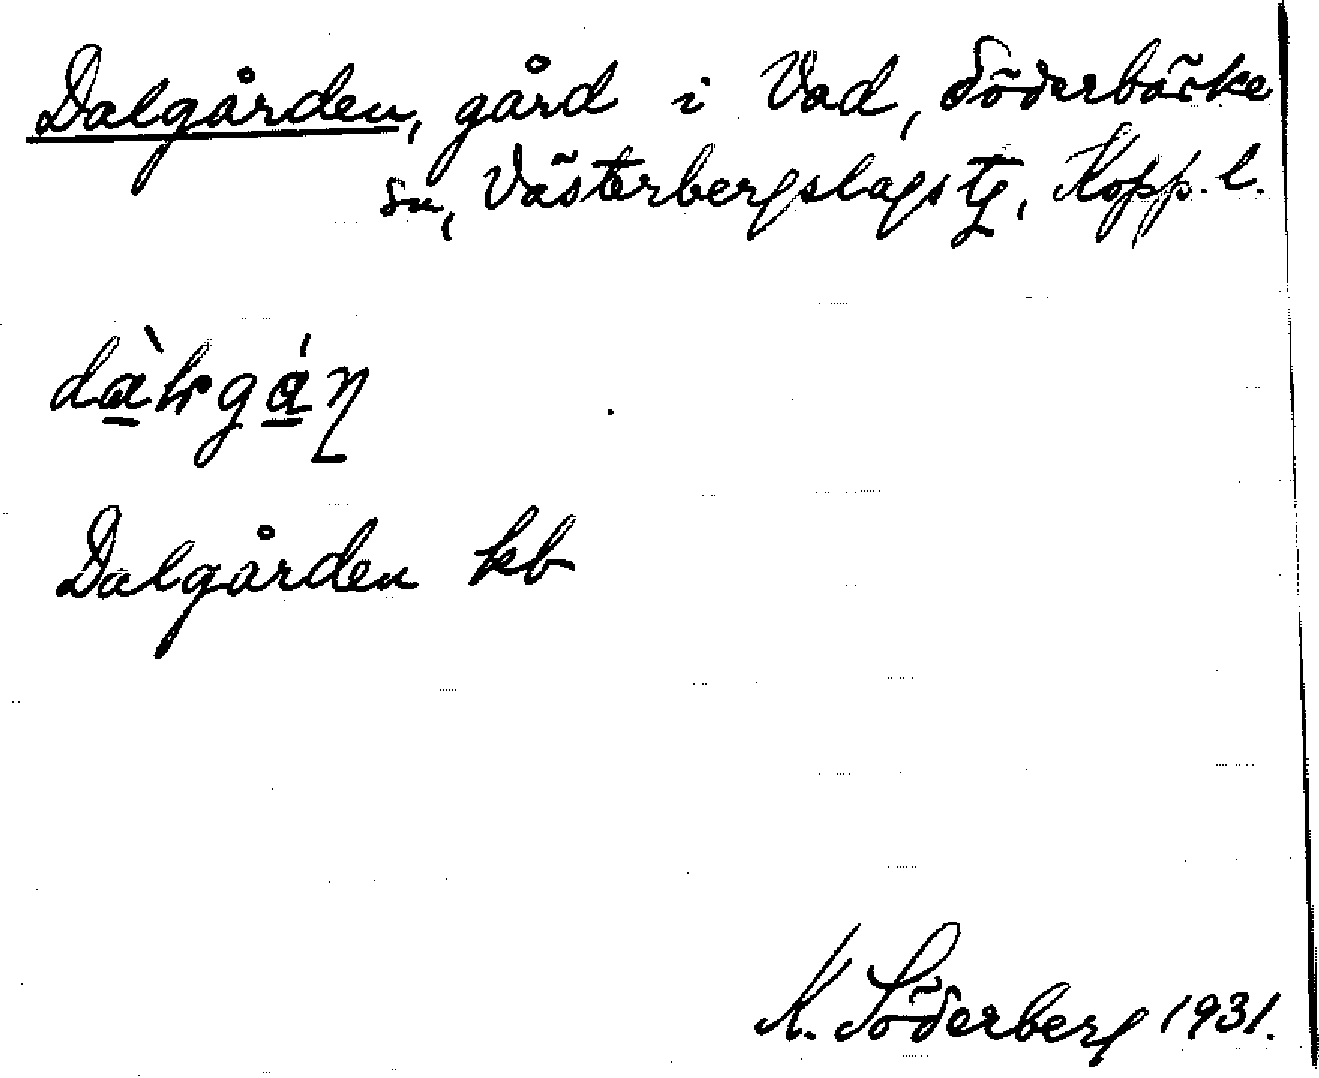 Dalgården, gård i Vad, Söderbärke
sn, Västerbergslags tg, Kopp. l.
Dalgården kb
K. Söderberg 1931.